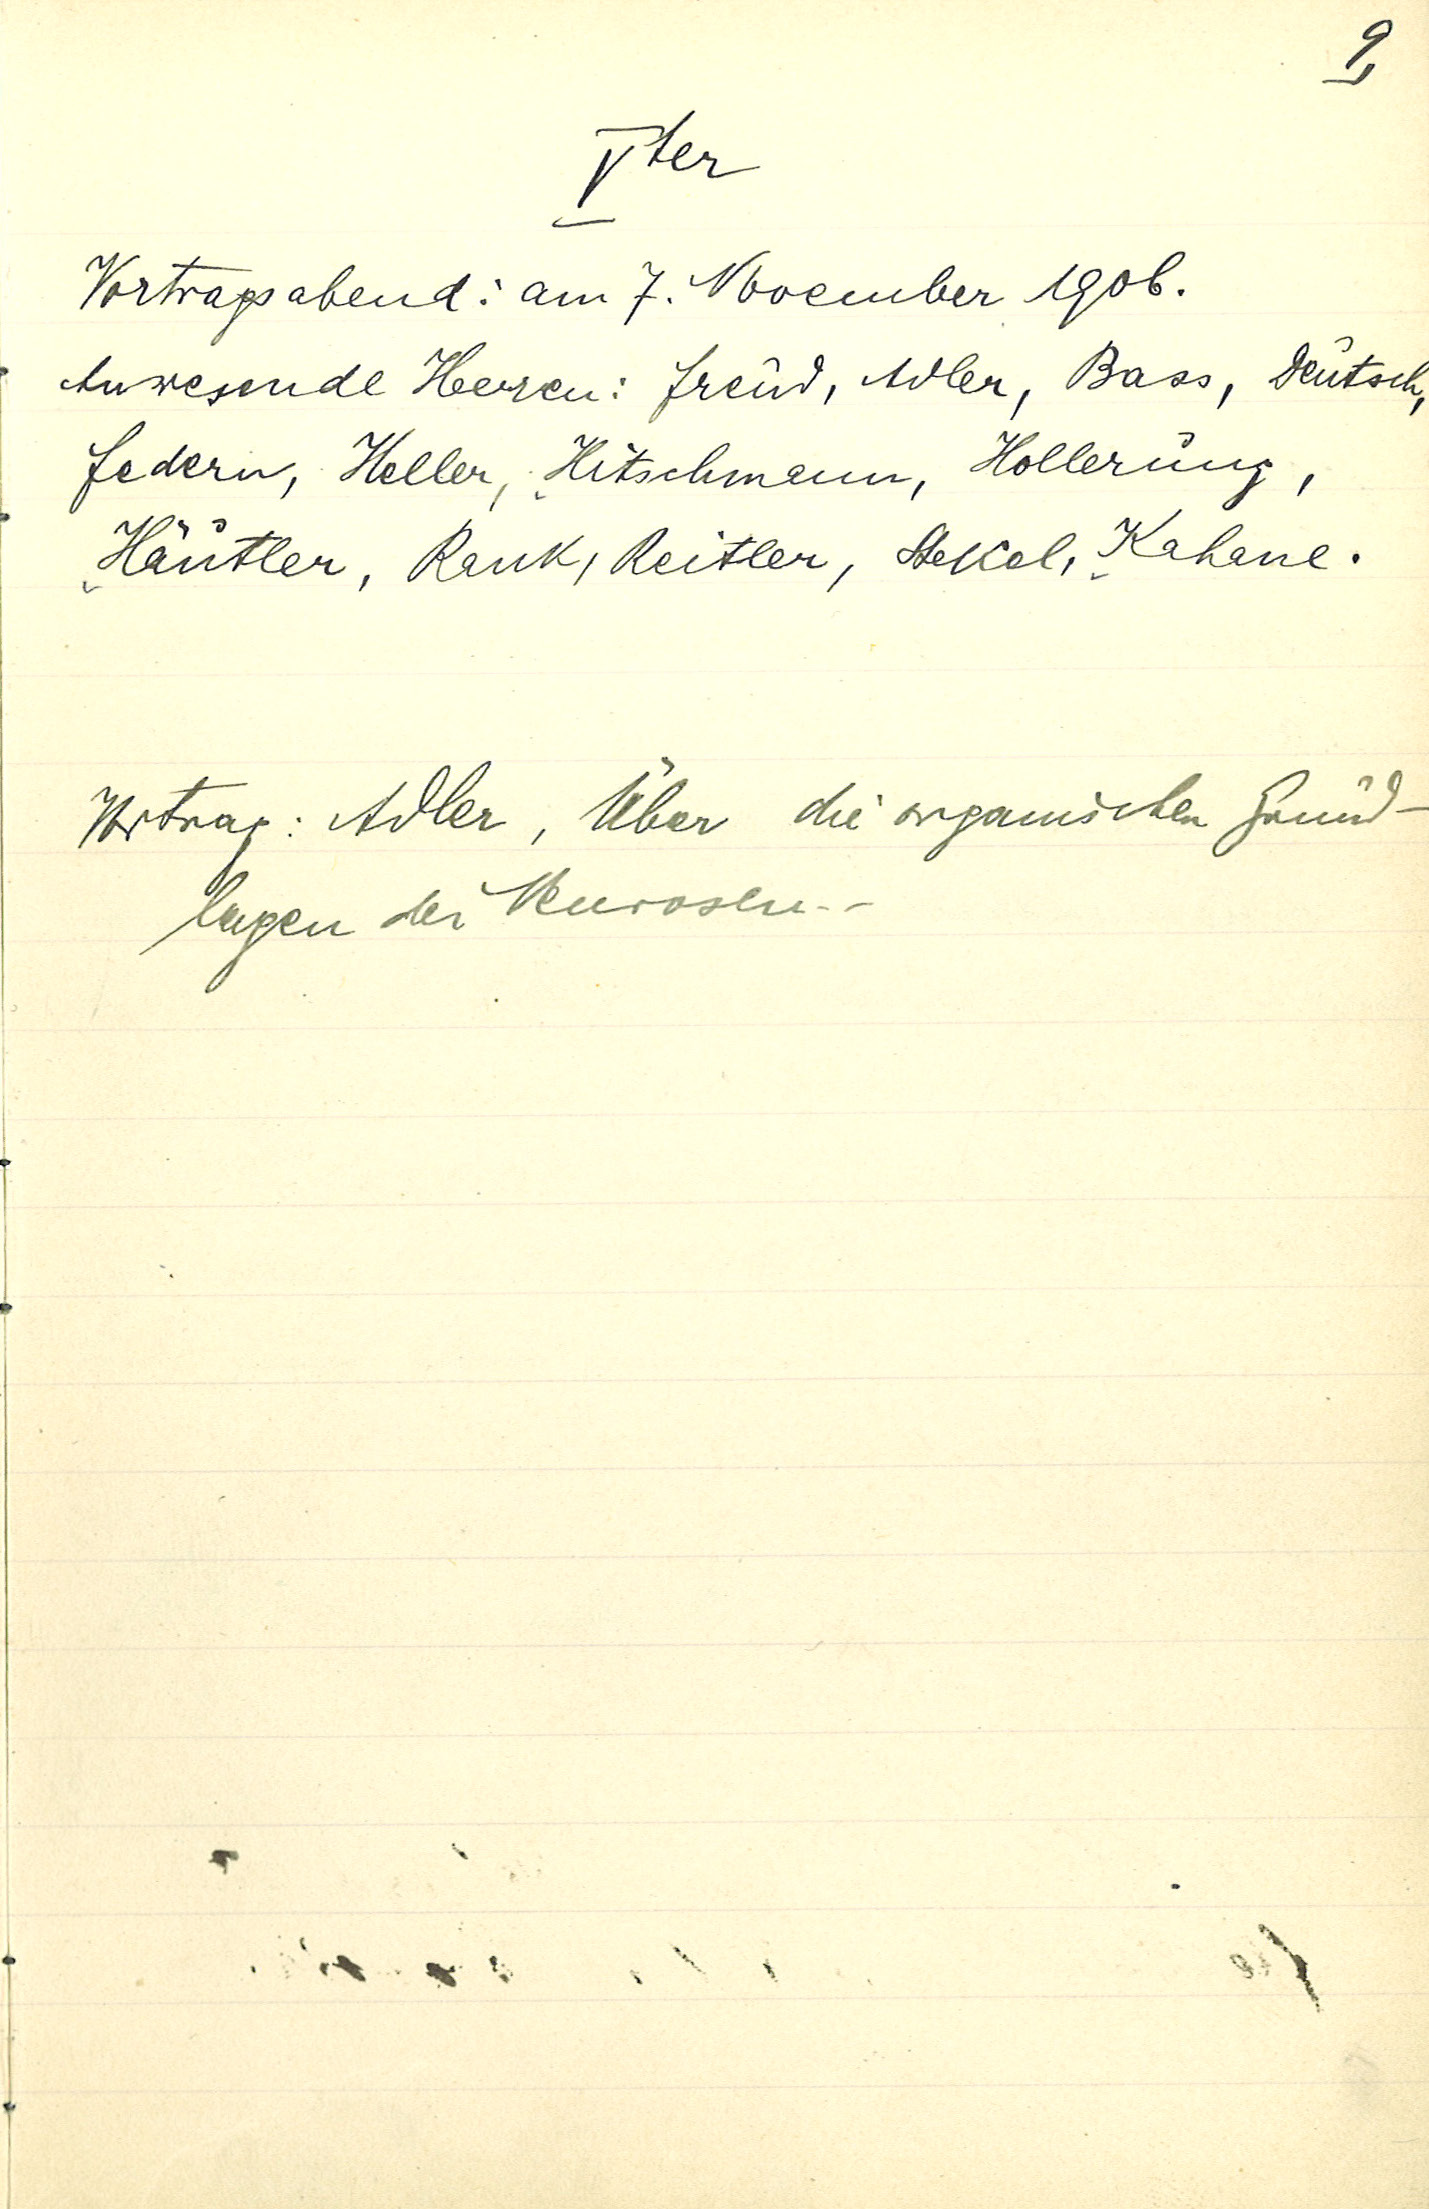 9,
Vter
Vortragsabend: am 7. November 1906.
Anwesende Herren: Freud, Adler, Bass, Deutsch,
Federn, Heller, Hitschmann, Hollerung,
Häutler, Rank, Reitler, Stekel, Kahane.
Vortrag: Adler, Über die organischen Grund-
lagen der Neurosen.-